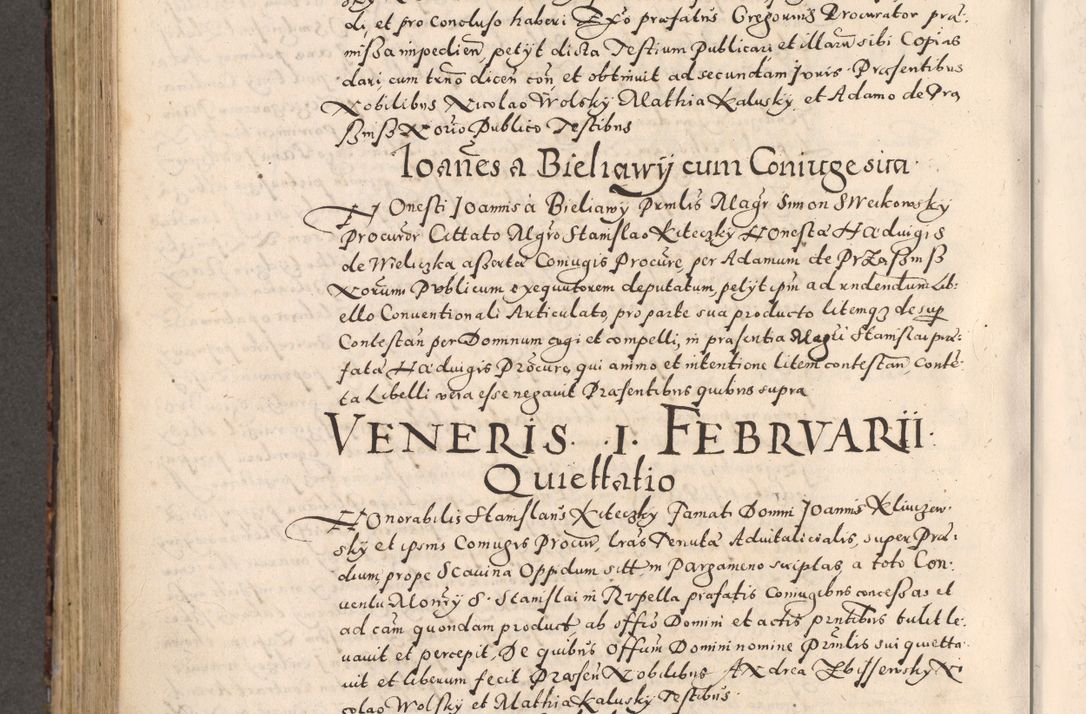 di, et pro concluso haberi Ex o præfatus Gregorius Procurator præ-
missa impedien, petyt dicta Testium Publicari et illarū sibi Copias
dari cum trno dicen con, et obtinuit ad secundam Iuris Præsentibus
Nobilibus Nicolao Wolsky Mathia Kalusky, et Adamo de Prza
smiss Norio Publico Testibus
Ioannes a Bieliawy cum Coniuge sua
Honesti Ioannis a Bieliawy Prmlis Magr Simon Sweikowsky
Procuror Cittato Mgro Stanislao Kiteczky Honesta Hadwigis
de Wieliczka asserta Coniugis Procure, per Adamum de Przassniss
Norium Publicum exequutorem deputatum, petyt ipm ad rndendum Lib-
ello Conventionali Articulato, pro parte sua producto litemq de sup
Contestan per Domnum cogi et compelli, in præsentia Magri Stanislai præ-
fata Hadwigis Procure, qui animo et intentione litem contestan, conte-
ta Libelli vera esse negavit Præsentibus quibus supra
VENERIS . I . FEBRVARII .
Quiettatio
Honorabilis Stanislaus Kiteczky Famati Domni Ioannis Kluczew-
sky et ipsius Coniugis Procur, lras Tenuta Advitalicialis, super Præ-
dium, prope Scavina Oppidum sitt, in Pargameno scriptas a toto Con-
ventu Monry S. Stanislai in Rupella præfatis Coniugibus concessas et
ad eam quondam product, ab offio Domini et actis prntibus tulit le-
vavit et percepit, De quibus Offium Domini nomine Prmlis sui quietta-
vit et liberum fecit Præsen Nobilibus Andrea Zbissewsky Ni-
colao Wolsky et Mathia Kalusky Testibus